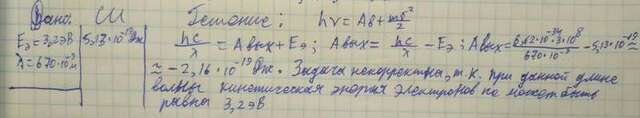 Дано: СИ Решение: hν = Aв + mv²/2
Eэ = 3,2 эВ 5,13·10⁻¹⁹ Дж hc/λ = Aвых + Eэ; Aвых = hc/λ − Eэ; Aвых = 6,62·10⁻³⁴·3·10⁸/670·10⁻⁹ − 5,13·10⁻¹⁹ ≈
λ = 670·10⁻⁹ м ≈ −2,16·10⁻¹⁹ Дж. Задача некорректна, т.к. при данной длине
волны кинетическая энергия электронов не может быть
равна 3,2 эВ